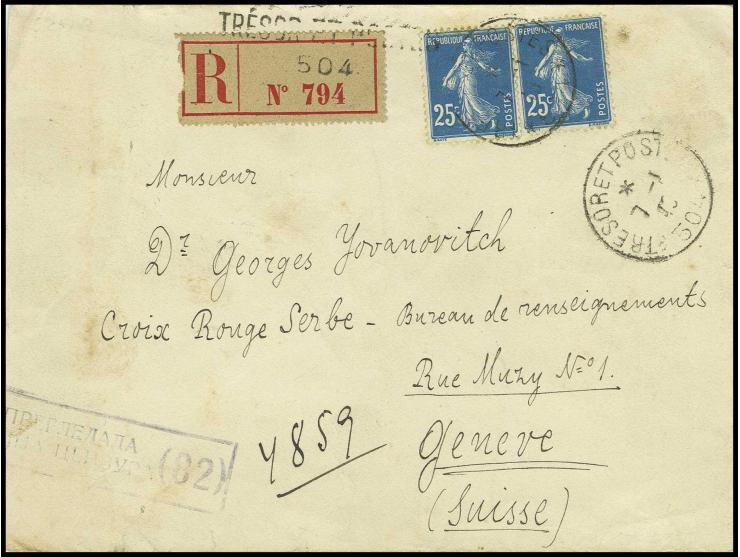 TRÉSOR ET POSTES
504
R
N° 794
REPUBLIQUE FRANÇAISE
25c
POSTES
REPUBLIQUE FRANÇAISE
25c
POSTES
TRESOR ET POSTES 504
*
7 - 1
Monsieur
Dr Georges Yovanovitch
Croix Rouge Serbe - Bureau de renseignements
Rue Muzy No 1.
Geneve
(Suisse)
4859
ПРЕГЛЕДАЛА
ЦЕНЗУРА (82)